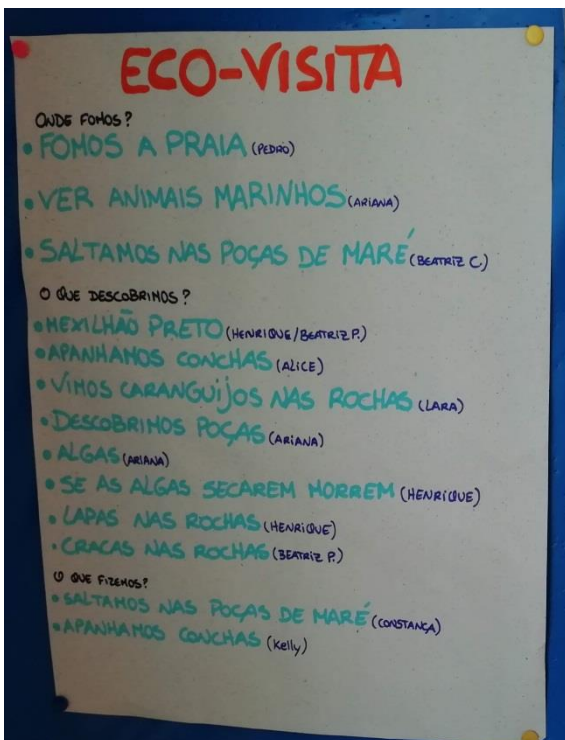 ECO-VISITA
ONDE FOMOS?
• FOMOS A PRAIA (PEDRO)
• VER ANIMAIS MARINHOS (ARIANA)
• SALTAMOS NAS POÇAS DE MARÉ (BEATRIZ C.)
O QUE DESCOBRIMOS?
• MEXILHÃO PRETO (HENRIQUE/BEATRIZ P.)
• APANHAMOS CONCHAS (ALICE)
• VIMOS CARANGUIJOS NAS ROCHAS (LARA)
• DESCOBRIMOS POÇAS (ARIANA)
• ALGAS (ARIANA)
• SE AS ALGAS SECAREM MORREM (HENRIQUE)
• LAPAS NAS ROCHAS (HENRIQUE)
• CRACAS NAS ROCHAS (BEATRIZ P.)
O QUE FIZEMOS?
• SALTAMOS NAS POÇAS DE MARÉ (CONSTANÇA)
• APANHAMOS CONCHAS (Kelly)